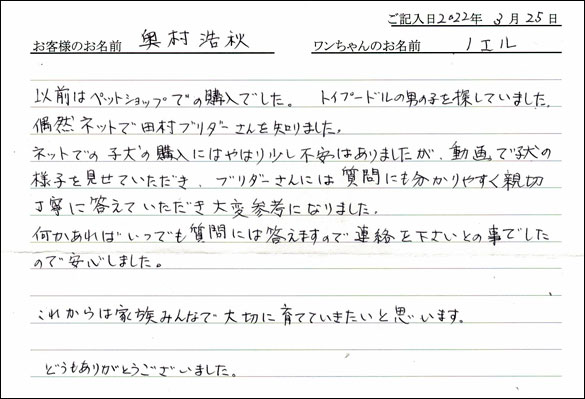 ご記入日2022年 3月 25日
お客様のお名前 奥村浩秋 ワンちゃんのお名前 ノエル
以前はペットショップでの購入でした。 トイプードルの男の子を探していました。
偶然ネットで田村ブリダーさんを知りました。
ネットでの子犬の購入にはやはり少し不安はありましたが、動画で子犬の
様子を見せていただき、ブリダーさんには質問にも分かりやすく親切
丁寧に答えていただき大変参考になりました。
何かあればいつでも質問には答えますので連絡を下さいとの事でした
ので安心しました。
これからは家族みんなで大切に育てていきたいと思います。
どうもありがとうございました。